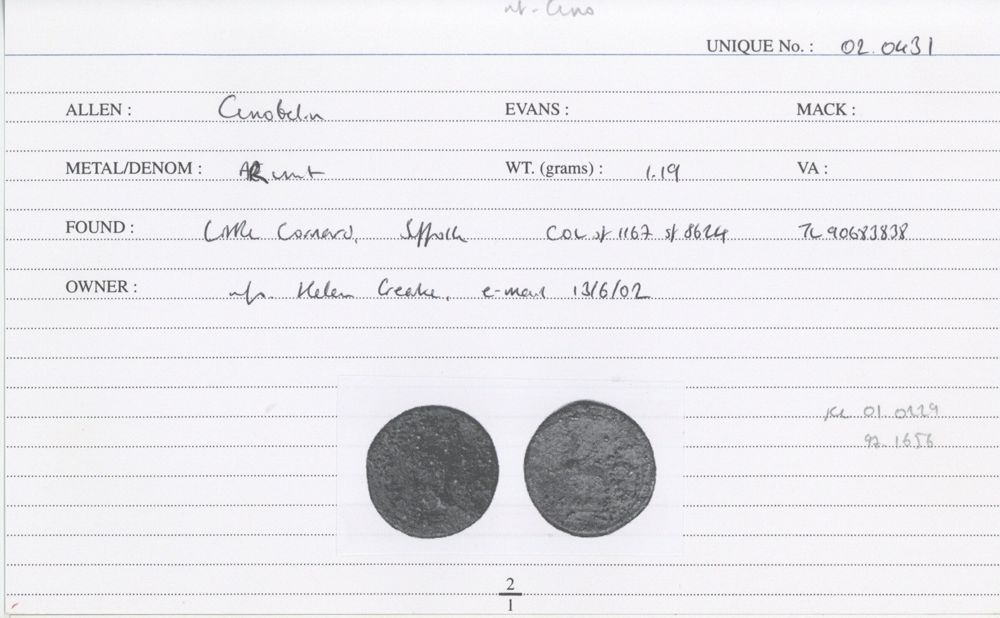 UNIQUE No. : 02.0431
ALLEN : Cunobelin EVANS : MACK :
METAL/DENOM : AR unit WT. (grams) : 1.19 VA :
FOUND : Little Cornard, Suffolk COL sf 1167 sf 8624 TL 90683838
OWNER : Helen Geake, e-mail 13/6/02
01.0229
92.1656
2
1